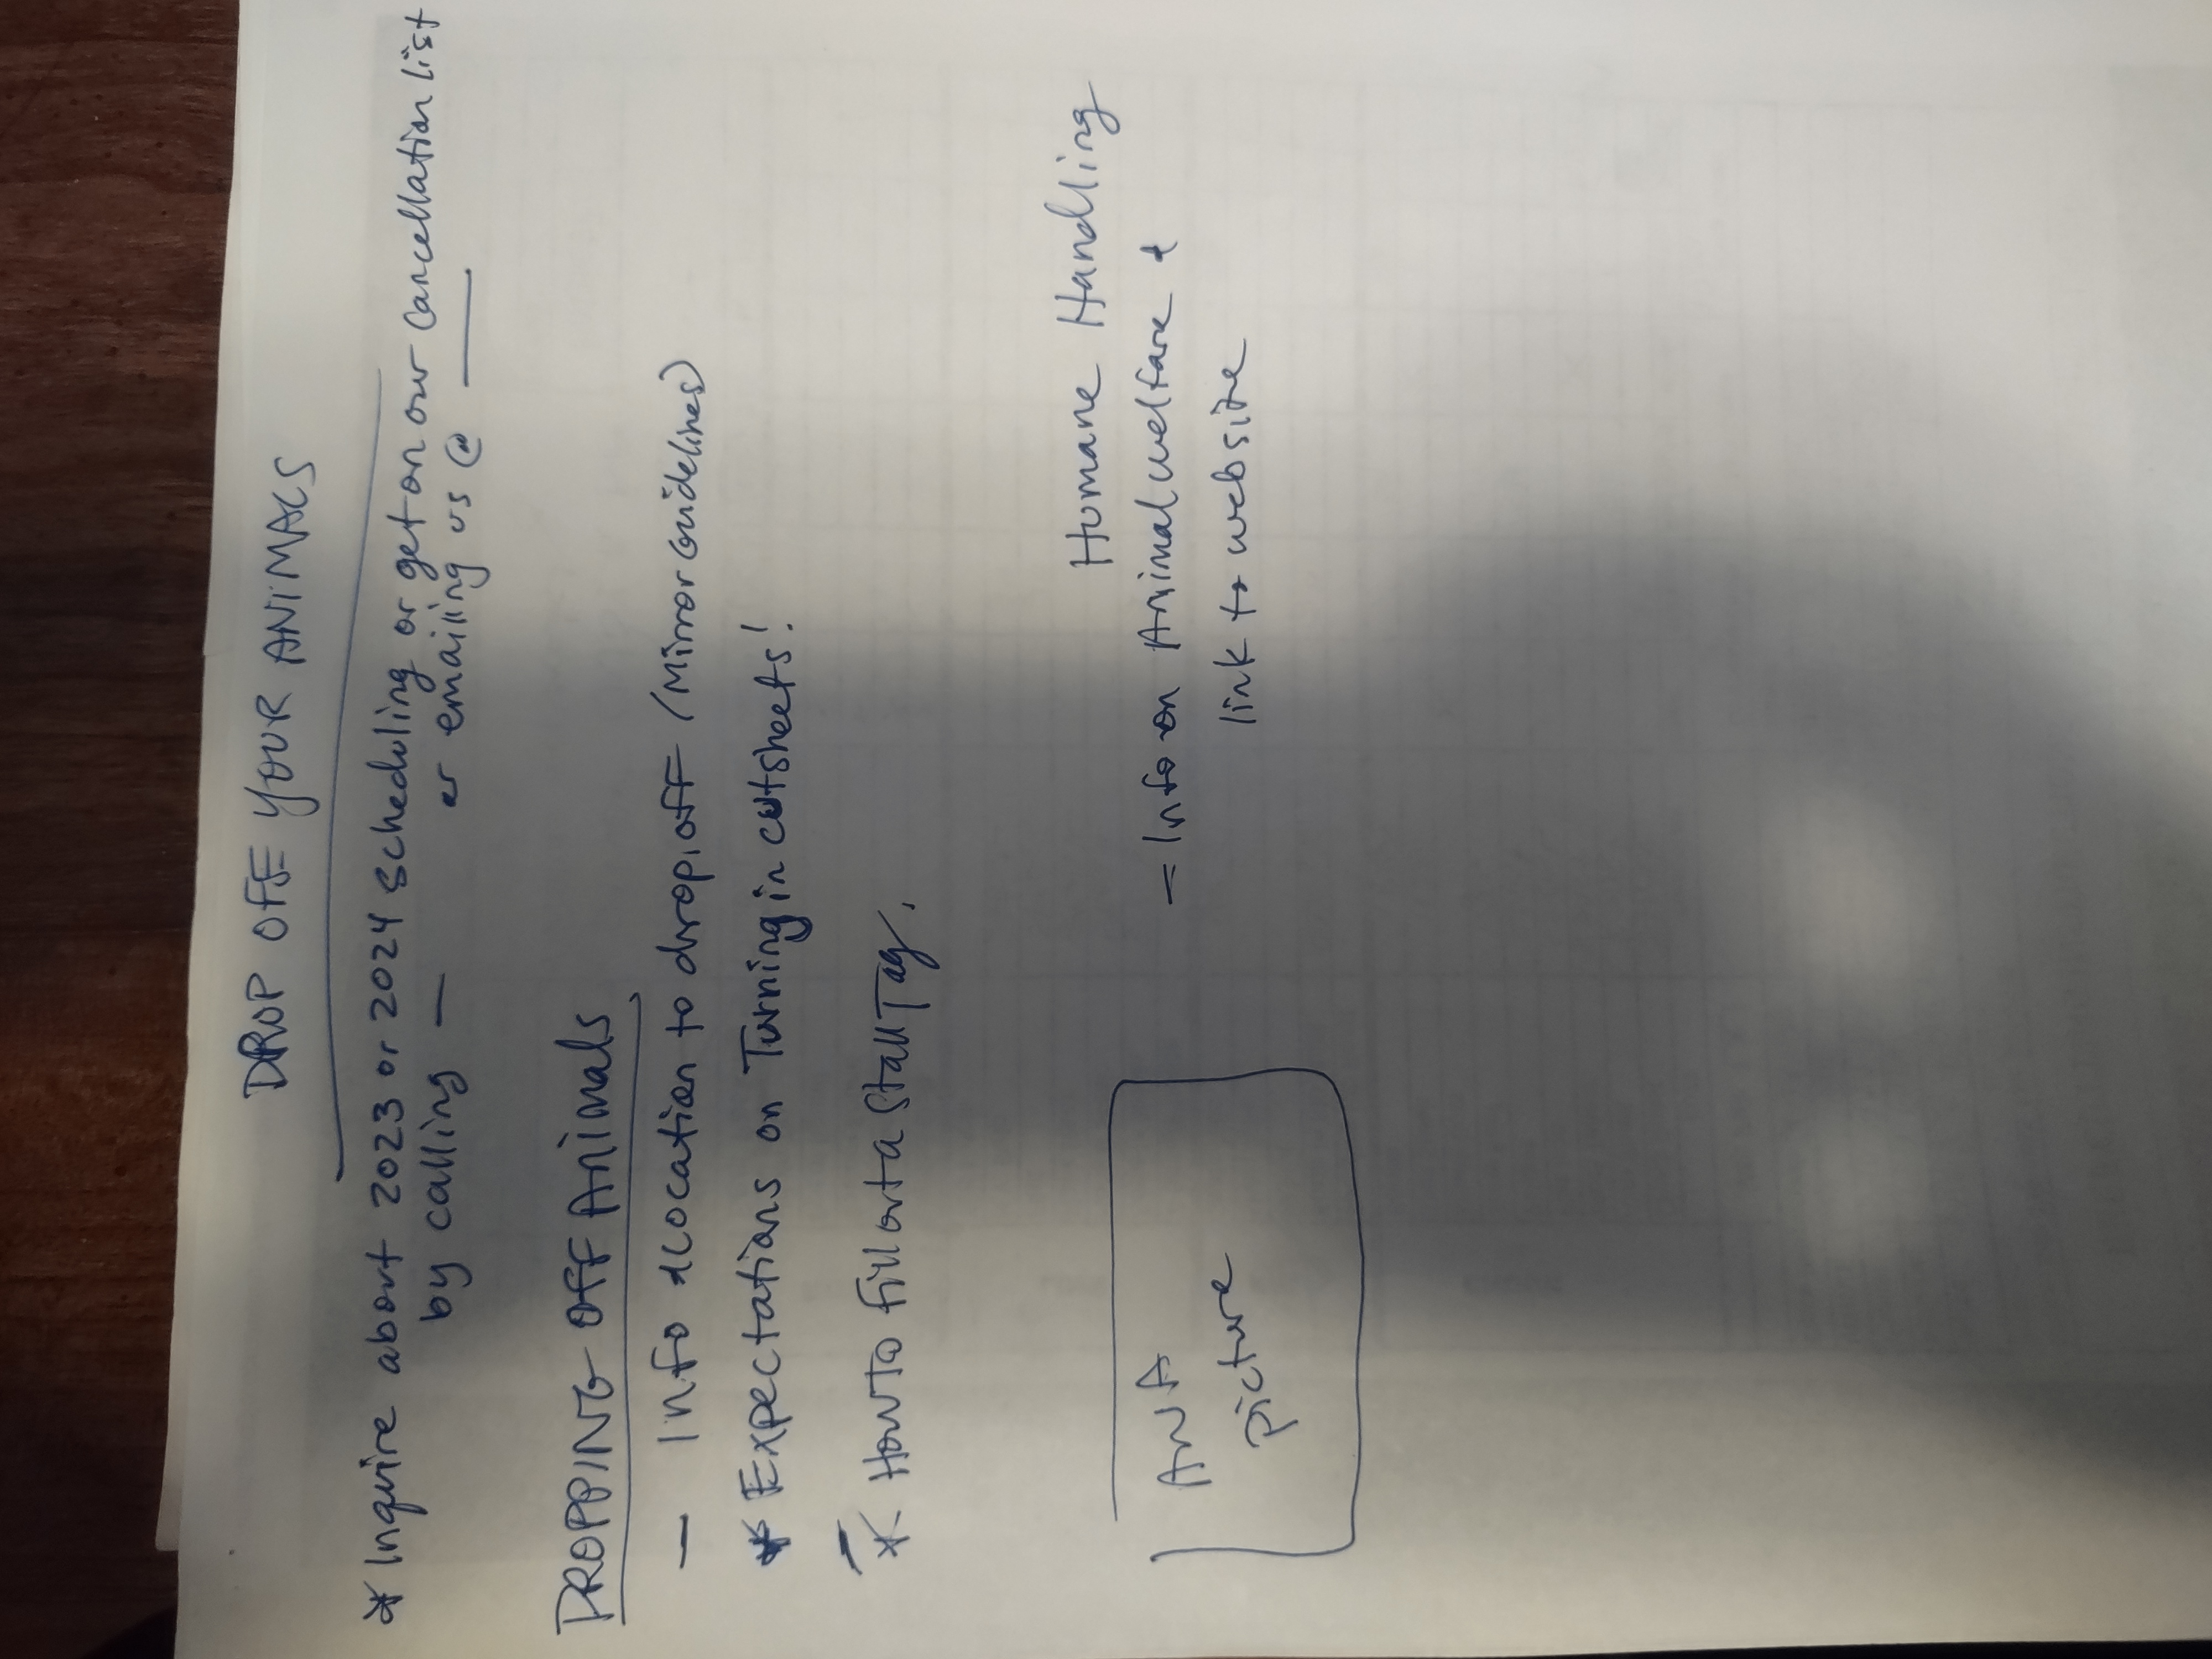 DROP OFF YOUR ANIMALS
* Inquire about 2023 or 2024 scheduling or get on our cancellation list
by calling — or emailing us @ ——
DROPPING OFF Animals
— Info & Location to drop off (Mirror Guidelines)
* Expectations on Turning in cutsheets!
* How To fill out a Stall Tag.
Humane Handling
— Info on Animal welfare &
link to website
AWA
picture